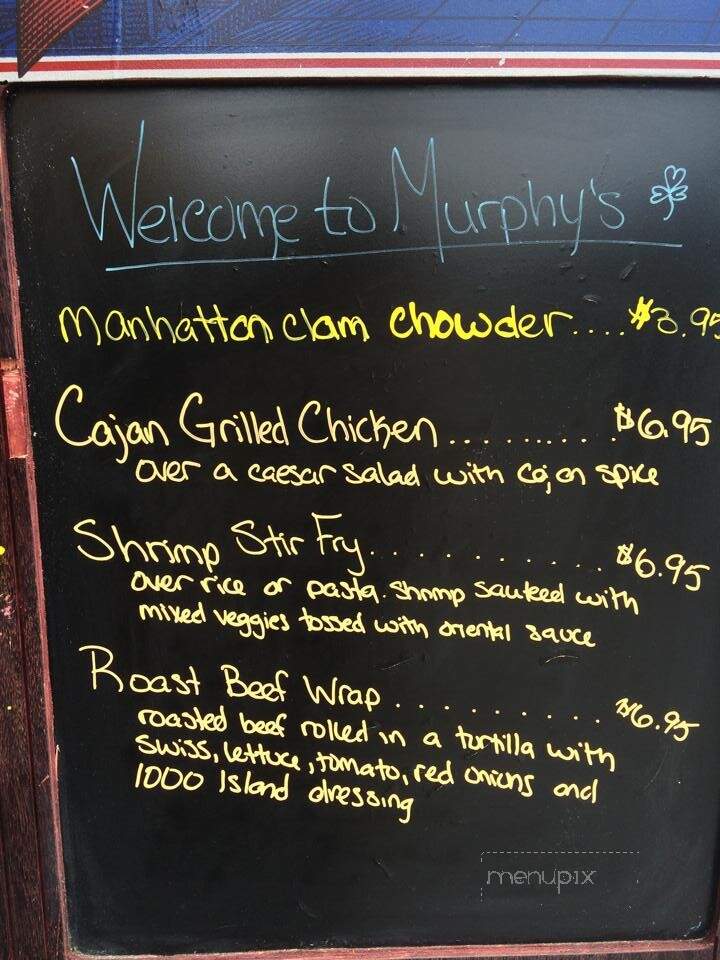 Welcome to Murphy's
Manhattan clam chowder....$3.95
Cajan Grilled Chicken...........$6.95
over a caesar salad with cajan spice
Shrimp Stir Fry............$6.95
over rice or pasta. shrimp sauteed with
mixed veggies tossed with oriental sauce
Roast Beef Wrap...........$6.95
roasted beef rolled in a tortilla with
swiss, lettuce, tomato, red onions and
1000 Island dressing
menupix